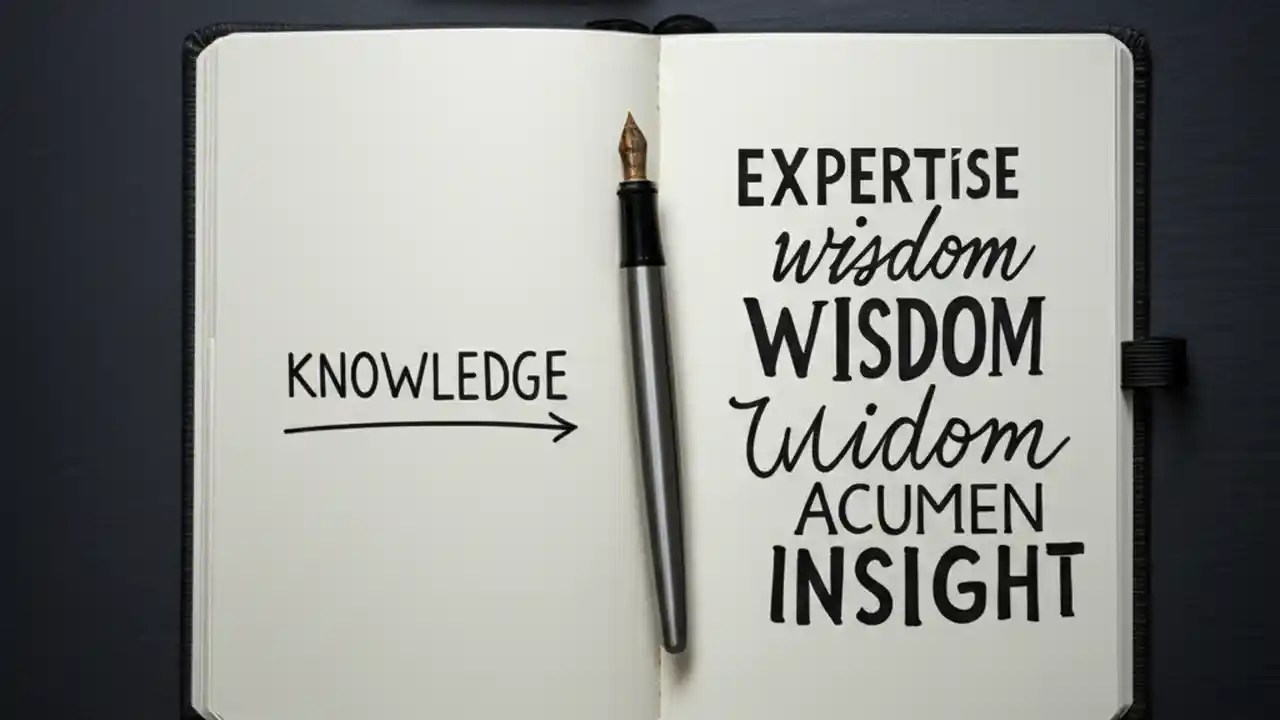 KNOWLEDGE
EXPERTISE
wisdom
WISDOM
Widom
ACUMEN
INSIGHT